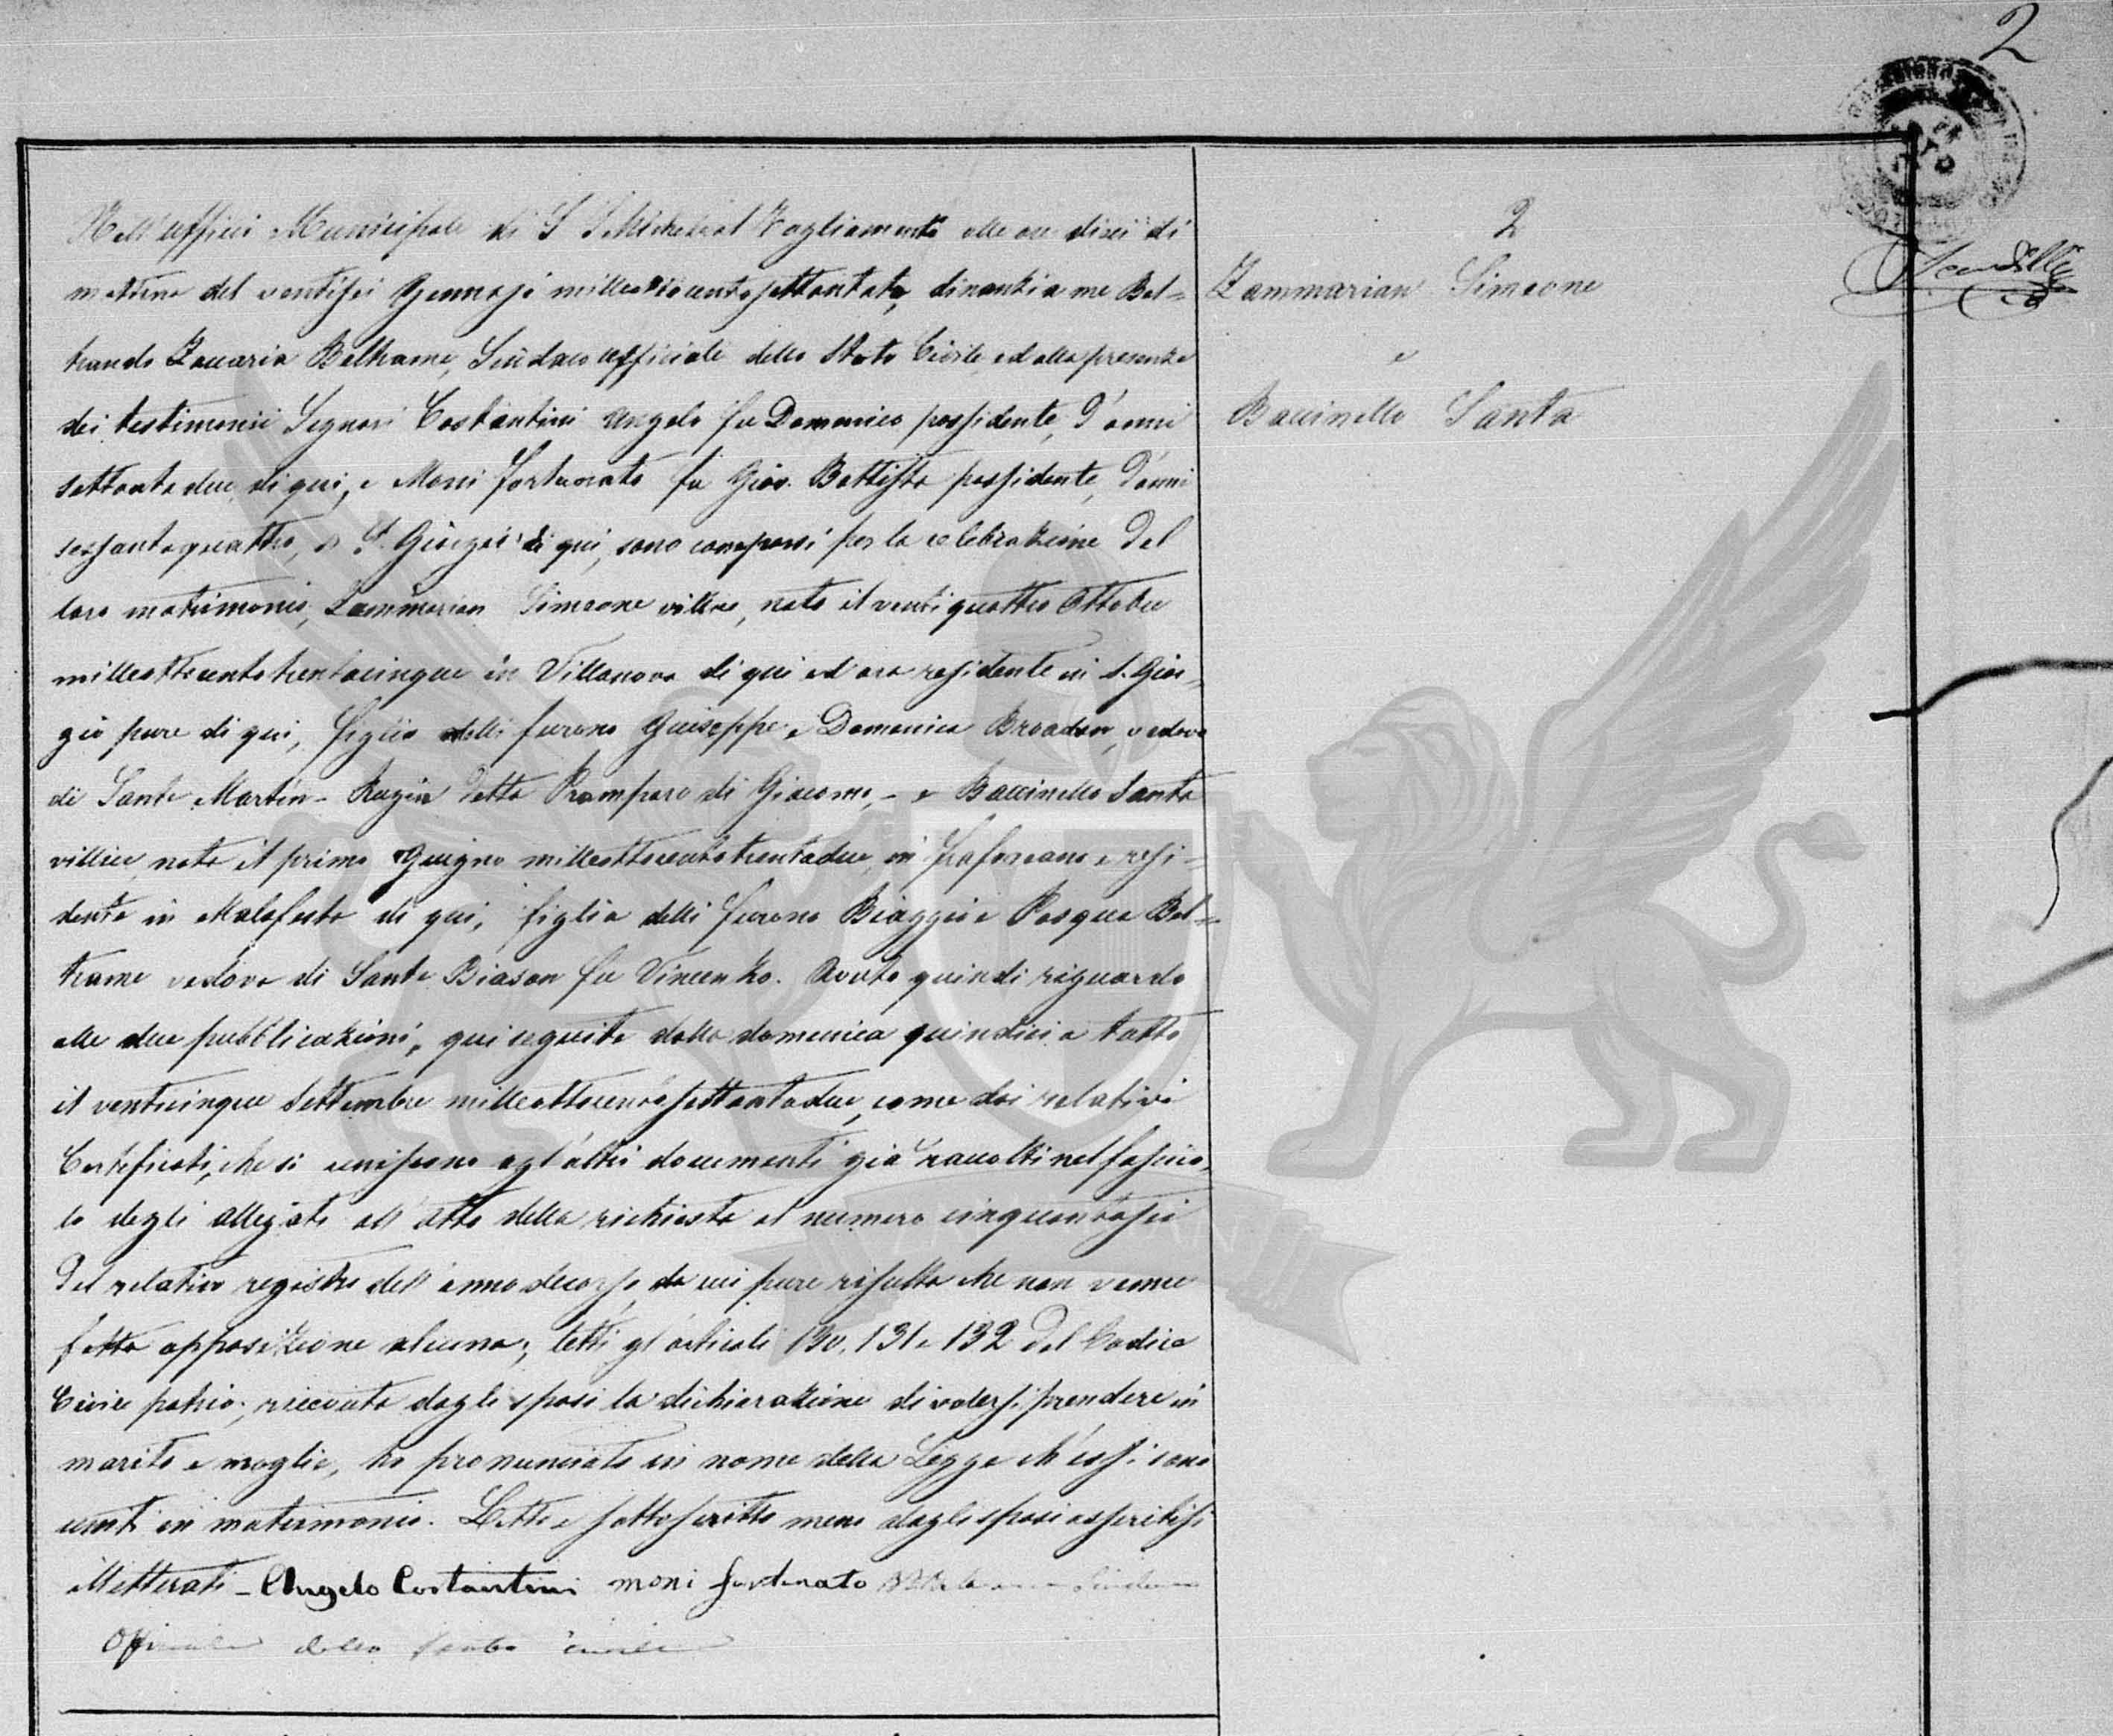 2
Nell'Ufficio Municipale di S Michele al Tagliamento alle ore dieci di
mattina del ventisei Gennajo milleottocentosettantatre, dinanzi a me Bel=
trando Zaccaria Beltrame, Sindaco Ufficiale dello Stato Civile, ed alla presenza
dei testimonii Signori Costantini Angelo fu Domenico possidente, d'anni
settantadue di qui, e Moni Fortunato fu Giov. Battista possidente, d'anni
sessantaquattro, di S. Giorgio di qui, sono comparsi per la celebrazione del
loro matrimonio, Zammarian Simeone villico, nato il ventiquattro Ottobre
milleottocentotrentacinque in Villanova di qui ed ora residente in S. Gior=
gio pure di qui, figlio delli furono Giuseppe e Domenica Bradan, vedovo
di Santa Martin- Ragin detta Pramparo di Giacomo,- e Baccinello Santa
villica, nata il primo Giugno milleottocentotrentadue, in Fraforeano e resi=
dente in Malafesta di qui, figlia delli furono Biaggio e Pasqua Bel=
trame vedova di Sante Biason fu Vincenzo. Avuto quindi riguardo
alle due pubblicazioni, qui seguite dalla domenica quindici a tutto
il venticinque Settembre milleottocentosettantadue, come dai relativi
Certificati, che si uniscono agl'altri documenti già raccolti nel fascico=
lo degli allegati all'atto della richiesta al numero cinquantasei
del relativo registro dell'anno decorso, da cui pure risulta che non venne
fatta opposizione alcuna; letti gl'articoli 130, 131 e 132 del Codice
Civile patrio; ricevuta dagli sposi la dichiarazione di volersi prendere in
marito e moglie, ho pronunciato in nome della Legge ch'essi sono
uniti in matrimonio. Letto e sottoscritto meno dagli sposi asseritisi
illetterati - Angelo Costantini moni fortunato
Officiale dello stato civile
2
Zammarian Simeone
e
Baccinello Santa